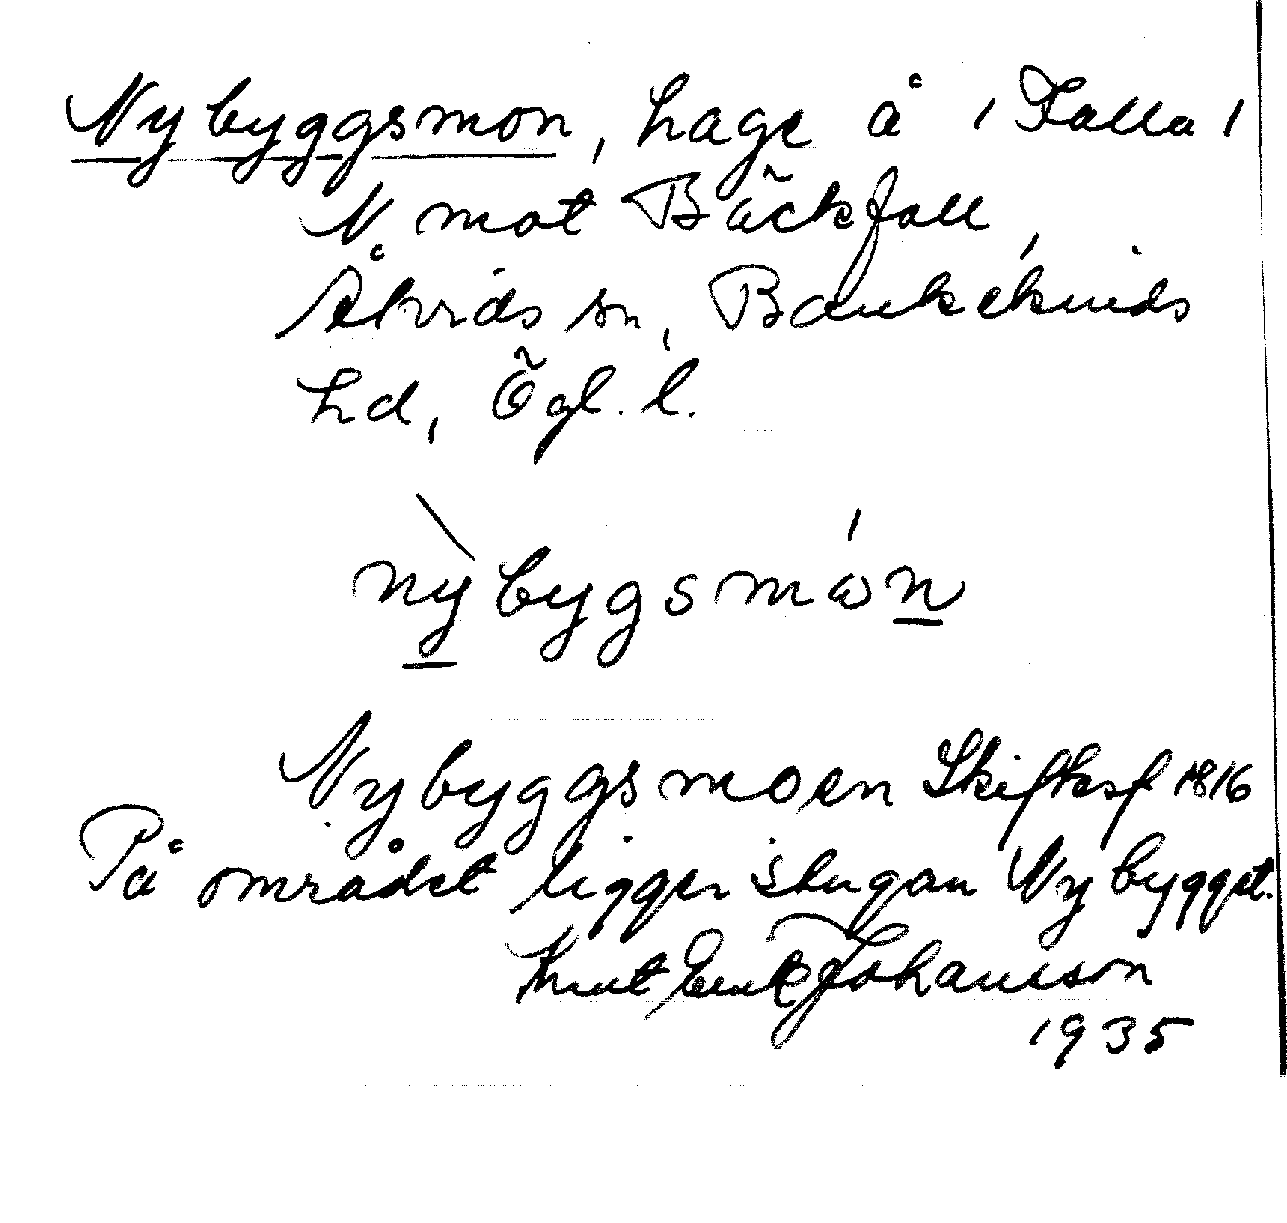 Nybyggsmon, hage å 1 Falla 1
N mot Bäckfall,
Åtvids sn, Bankekinds
hd, Ögl. l.
nỳbygsmón
Nybyggsmoen Skiftesf 1816
På området ligger stugan Nybygget.
Knut Erik Johansson
1935